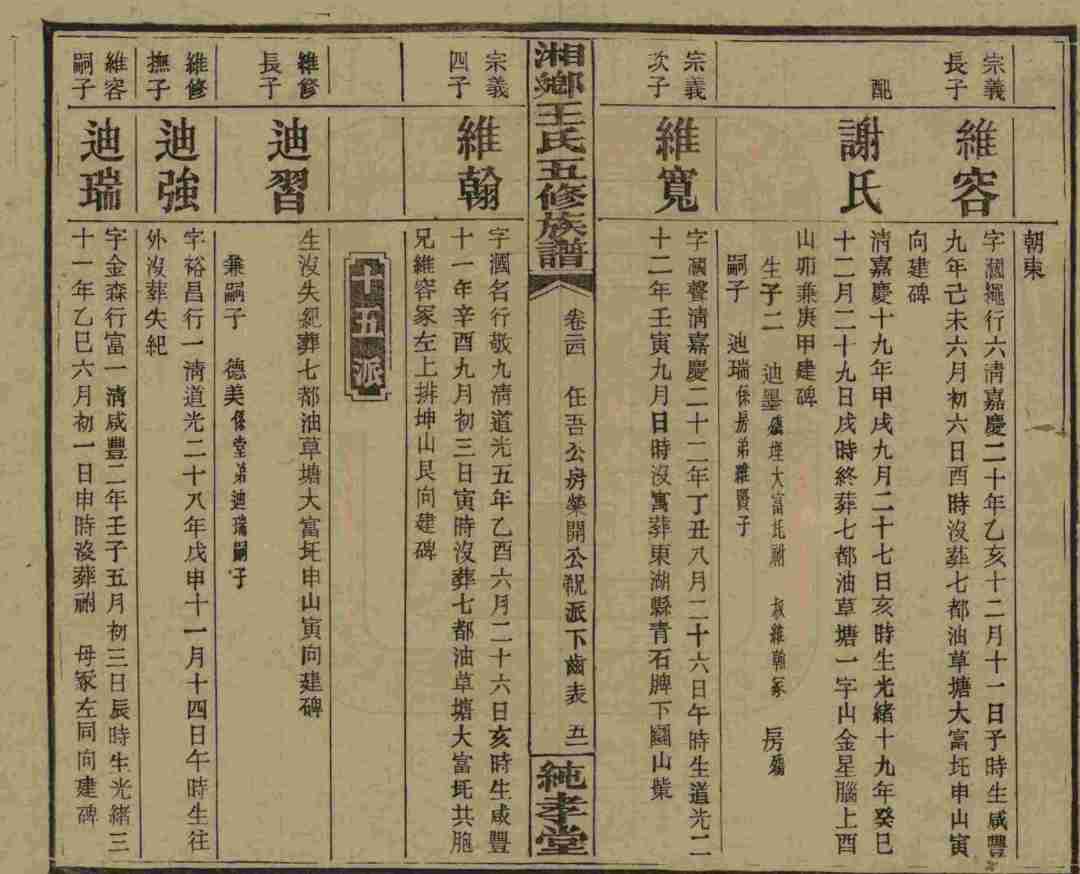 朝東
宗義
長子
維容
字瀾繩行六清嘉慶二十年乙亥十二月十一日子時生咸豐
九年己未六月初六日酉時沒葬七都油草塘大富坵申山寅
向建碑
配
謝氏
清嘉慶十九年甲戌九月二十七日亥時生光緒十九年癸巳
十二月二十九日戌時終葬七都油草塘一字山金星腦上酉
山卯兼庚甲建碑
生子二 迪墨殤埋大富坵祔 叔維翰冢 房殤
嗣子 迪瑞係房弟維賢子
宗義
次子
維寬
字瀾聲清嘉慶二十二年丁丑八月二十六日午時生道光二
十二年壬寅九月日時沒寓葬東湖縣青石牌下山紫
湘鄉王氏五修族譜
卷三四 任吾公房榮開公祝派下齒表 五一
純孝堂
宗義
四子
維翰
字瀾名行敬九清道光五年乙酉六月二十六日亥時生咸豐
十一年辛酉九月初三日寅時沒葬七都油草塘大富坵共胞
兄維容冢左上排坤山艮向建碑
五派
維修
長子
迪習
生沒失紀葬七都油草塘大富坵申山寅向建碑
兼嗣子 德美係堂弟迪瑞嗣子
維修
撫子
迪強
字裕昌行一清道光二十八年戊申十一月十四日午時生往
外沒葬失紀
維容
嗣子
迪瑞
字金森行富一清咸豐二年壬子五月初三日辰時生光緒三
十一年乙巳六月初一日申時沒葬祔 母冢左同向建碑